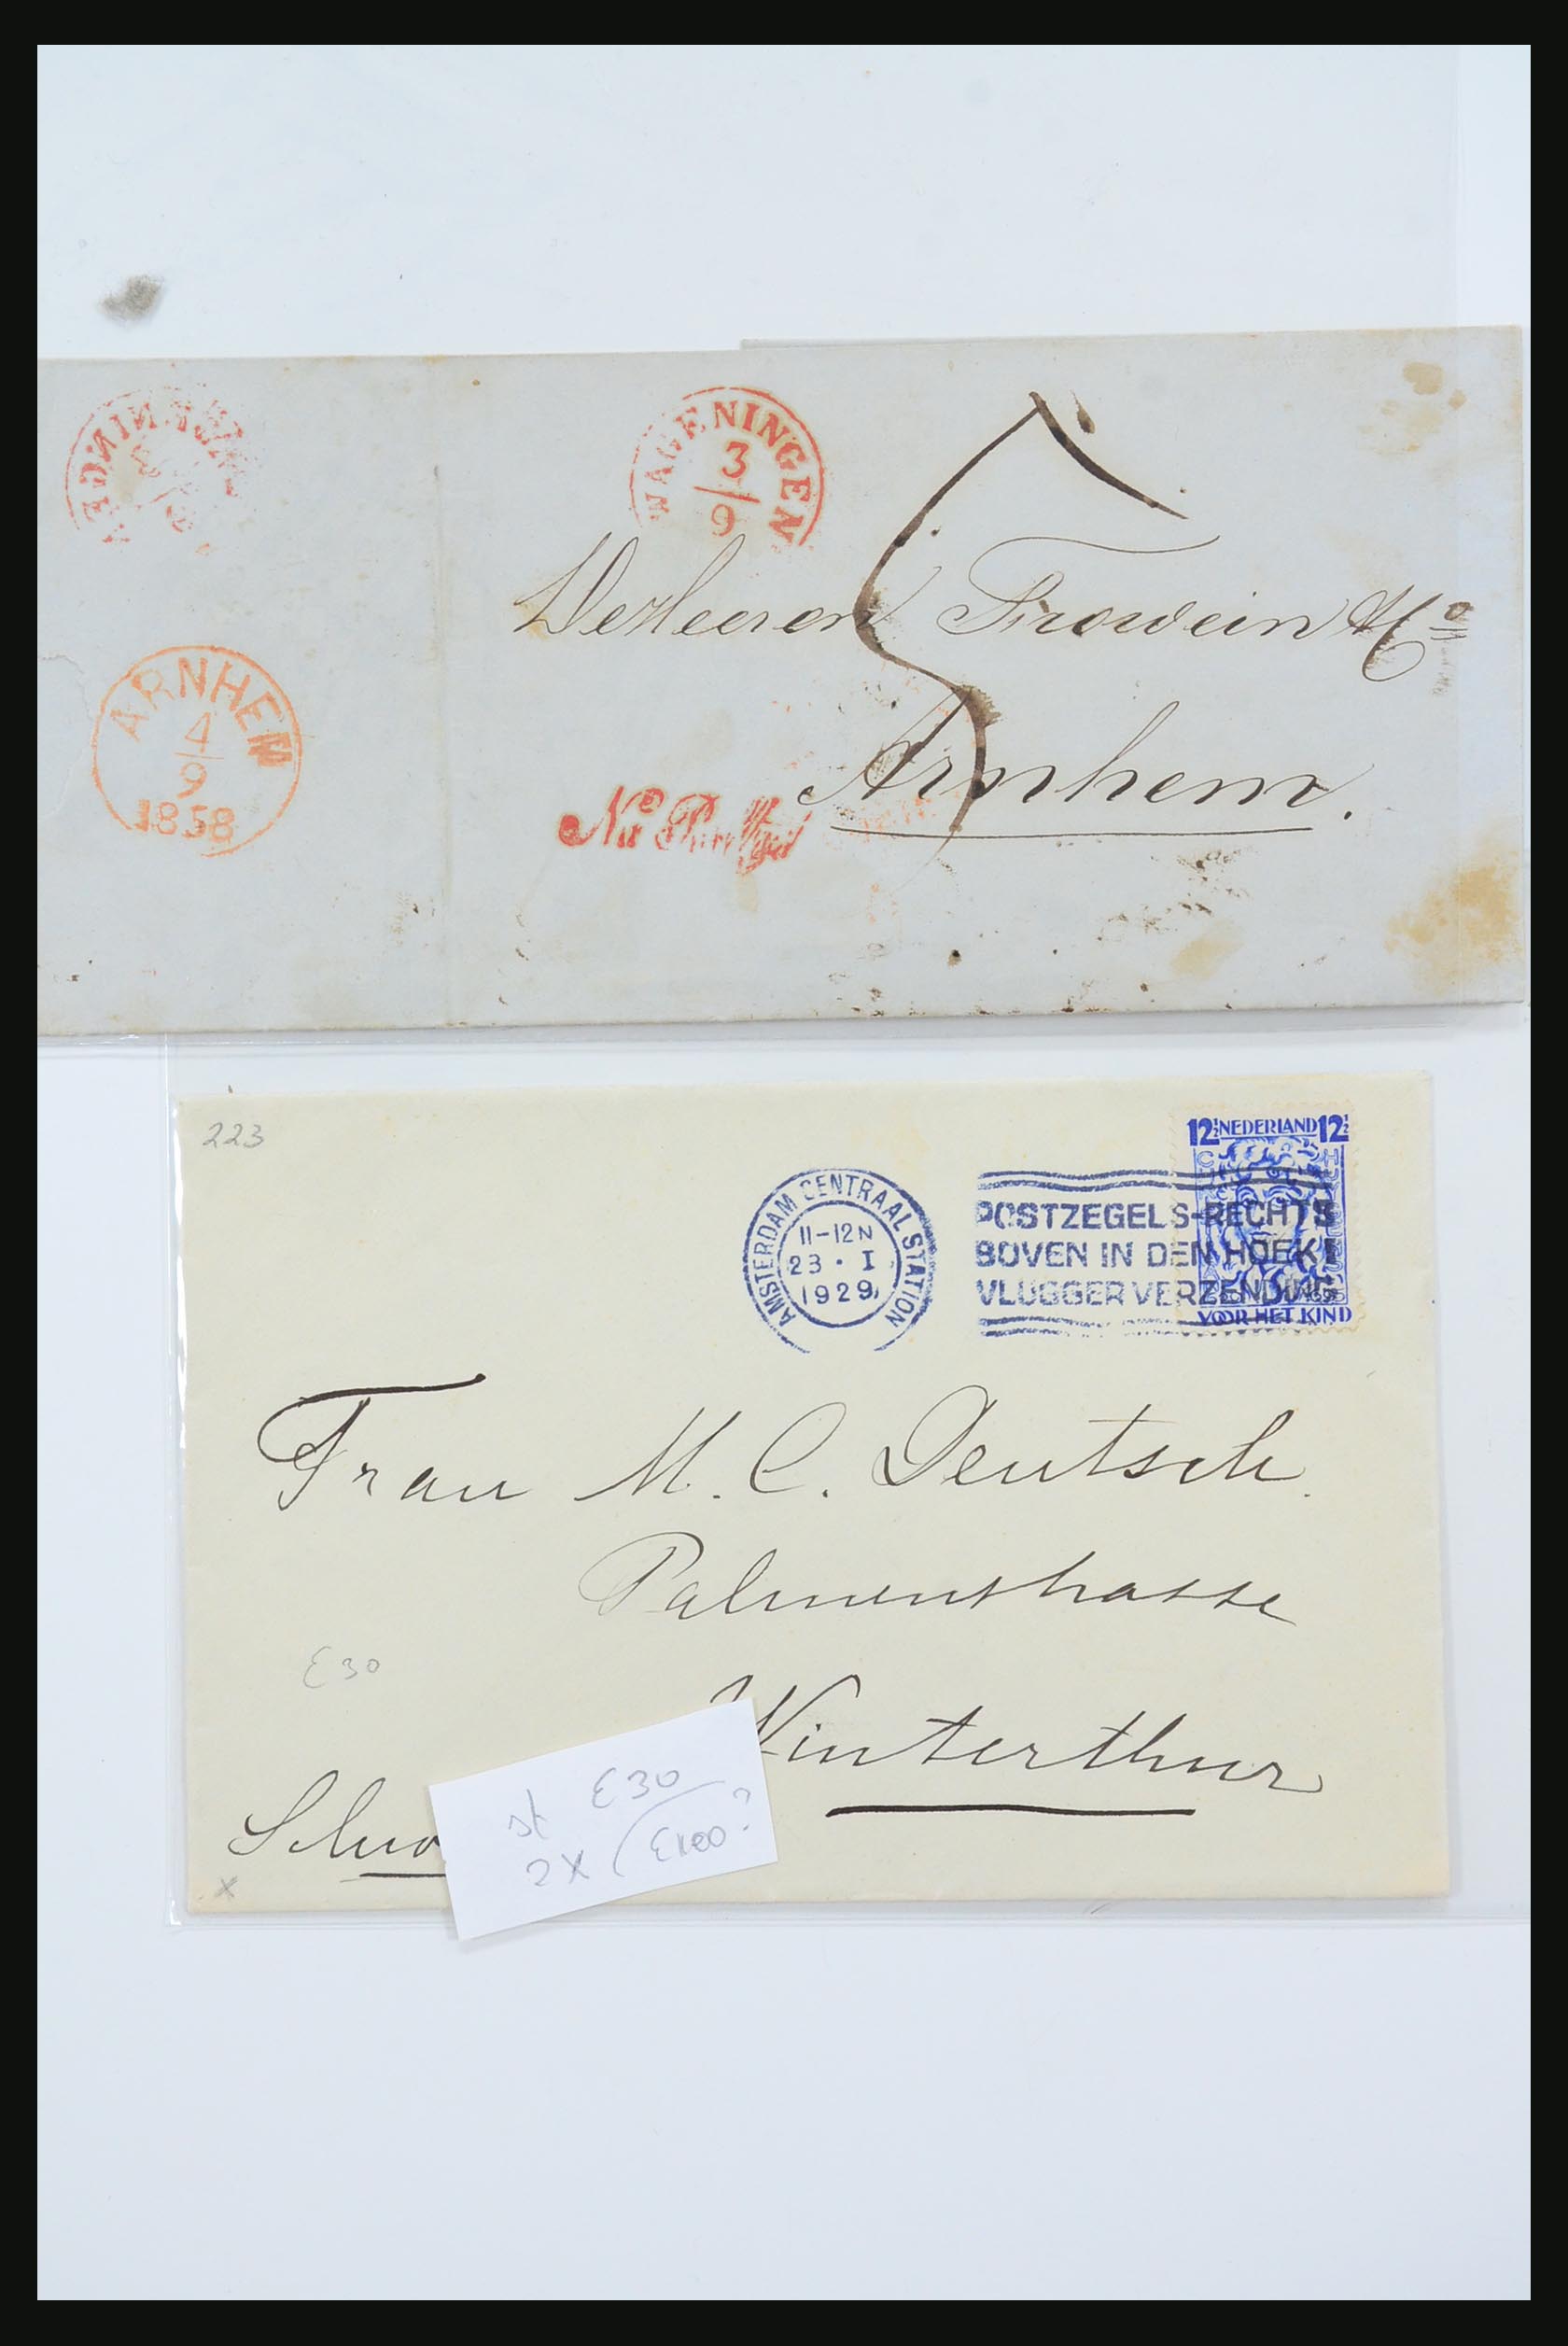 WAGENINGEN
3
9
WAGENINGEN
3
9
De Heeren Frowein & Co
Arnhem.
5
ARNHEM
4
9
1858
Na Posttijd
223
12½ NEDERLAND 12½
VOOR HET KIND
AMSTERDAM CENTRAAL STATION
11-12N
23 · I
1929
POSTZEGELS-RECHTS
BOVEN IN DEN HOEK!
VLUGGER VERZENDING
Frau M. C. Deutsch.
Palmenstrasse
Winterthur
€30
Schw
st €30
2x €100?
x